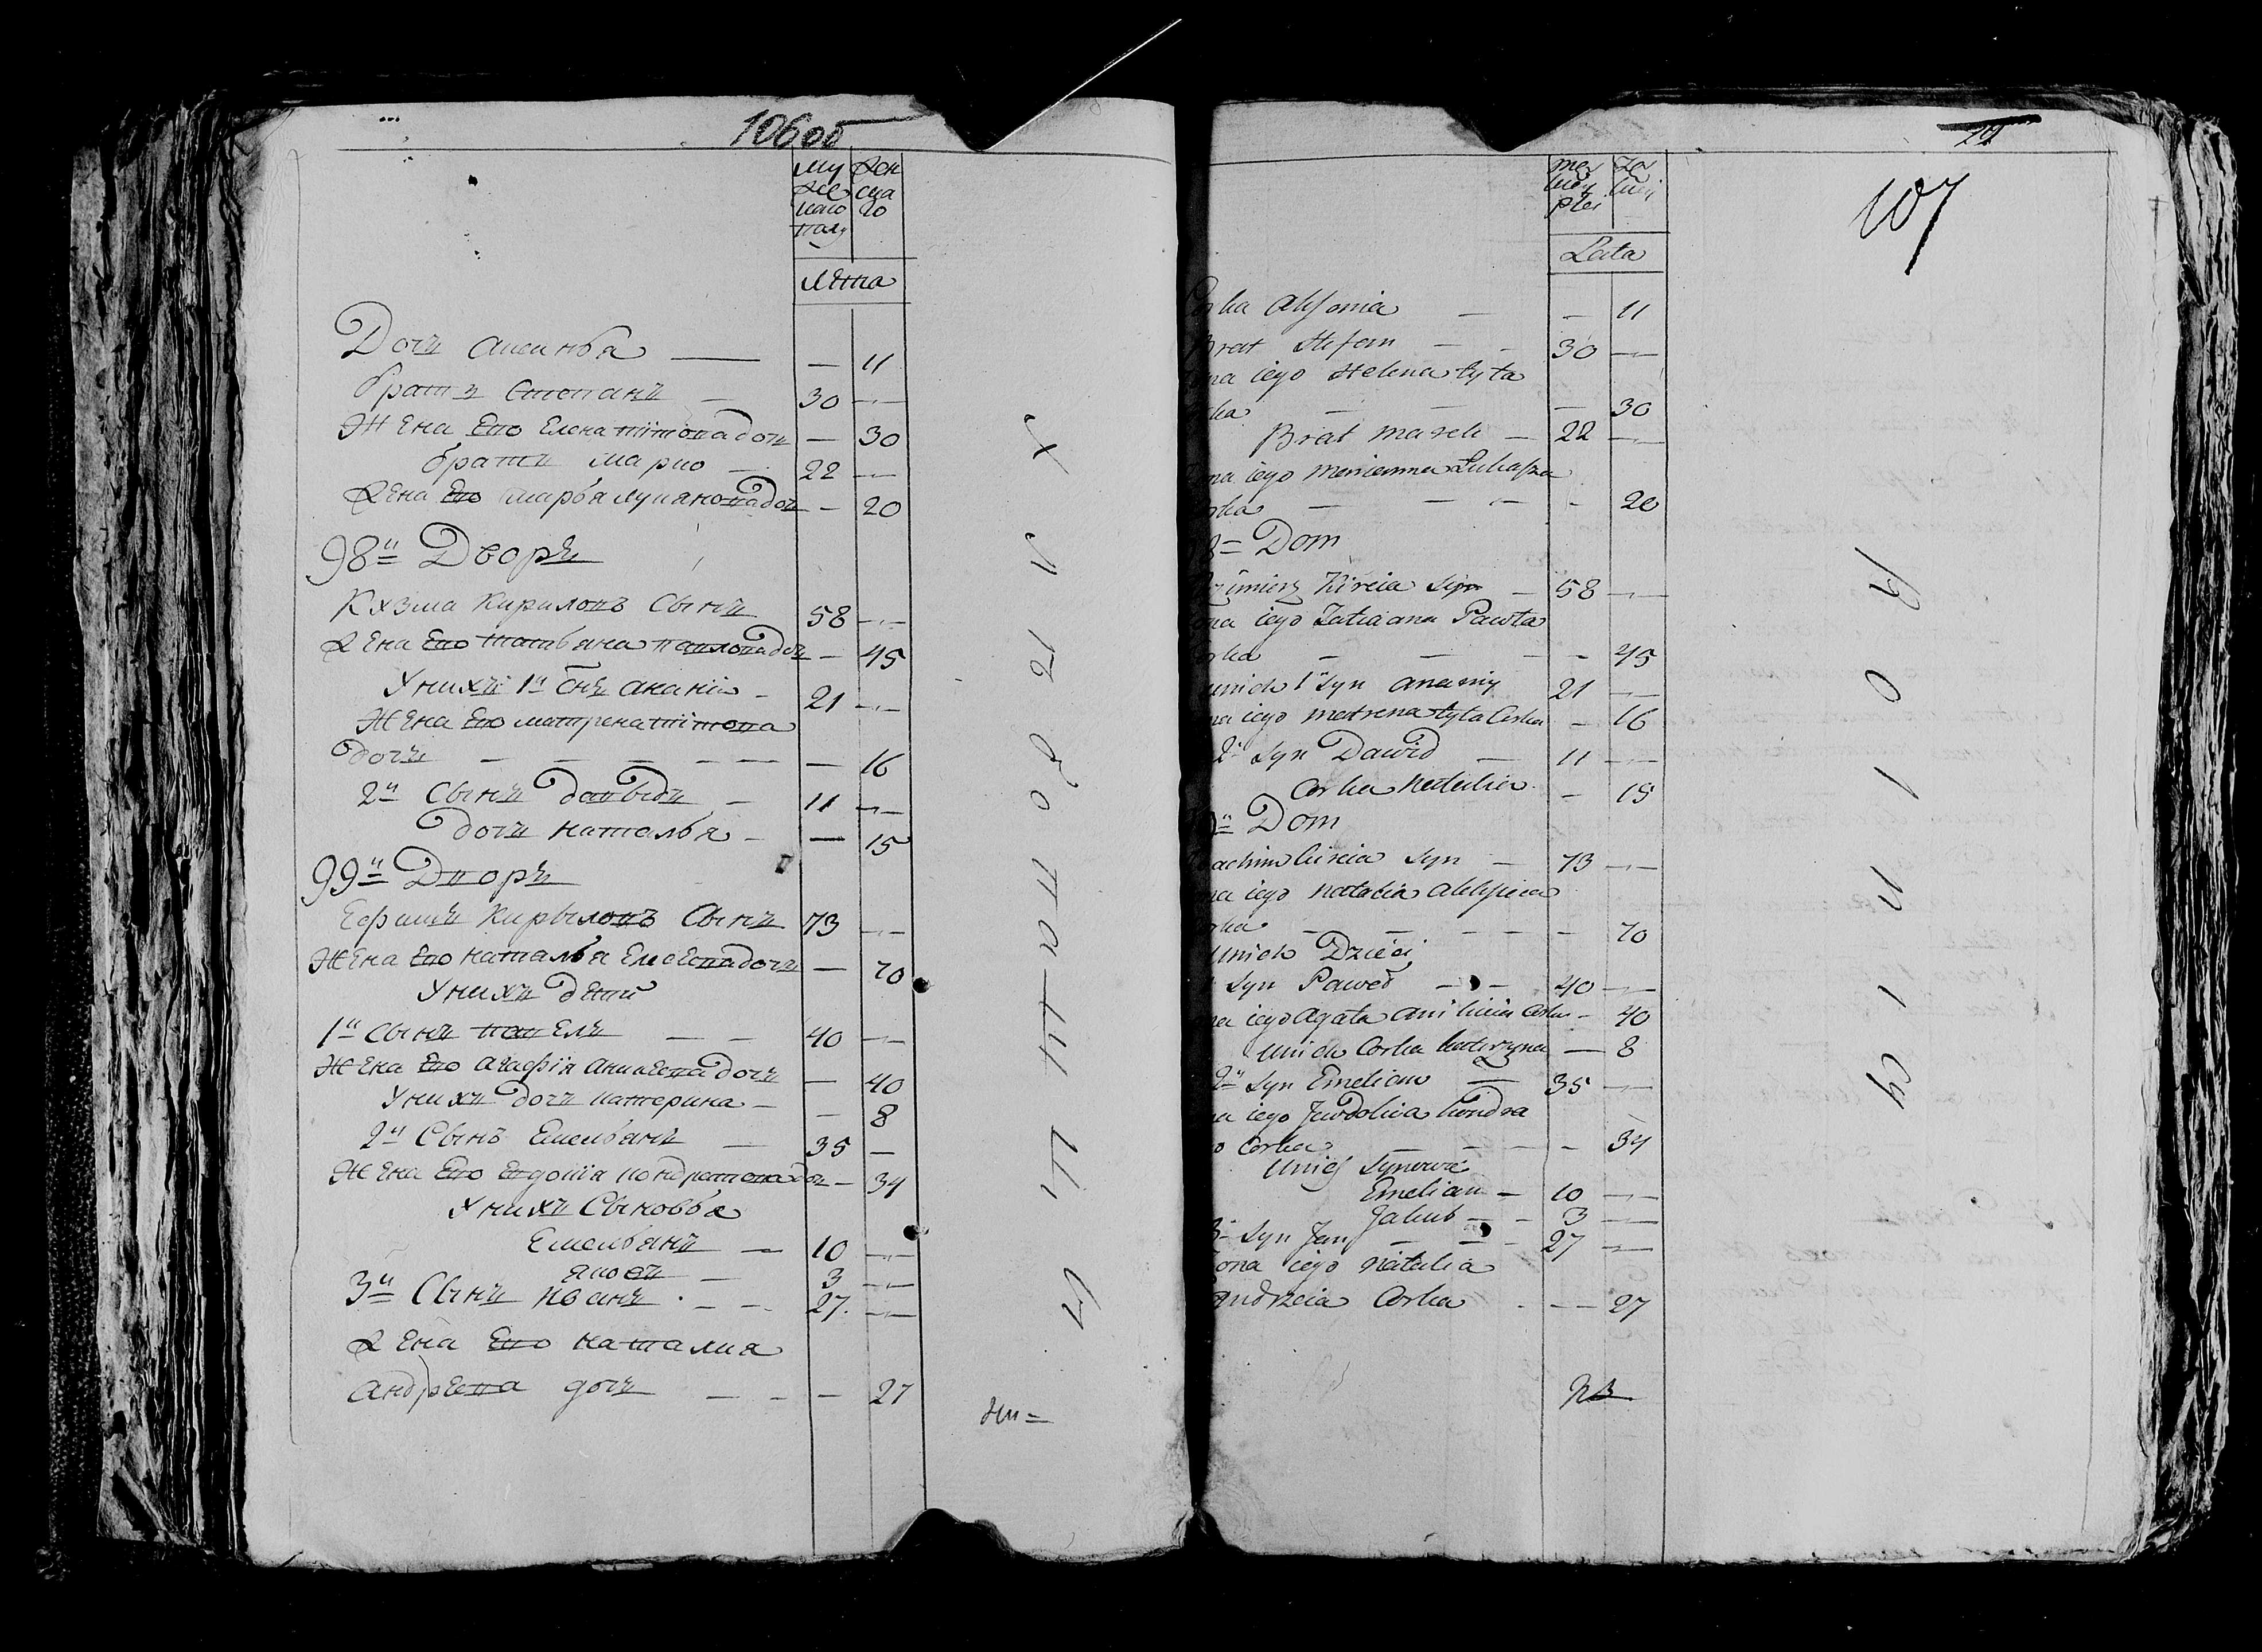 106об
Му Жен
же ска
каго го
полу
Лѣта
Дочь Аксинья — — 11
братъ Степанъ — 30 —
Жена Его Елена Титова дочь — 30
братъ Марко — 22 —
Жена Его Марья Лукянова доч — 20
98й Дворъ
Кузма Кириловъ Сынъ 58 —
Жена Его Татьяна Павлова дочь — 45
У нихъ 1й Снъ Ананiй — 21 —
Жена Его Матрена Титова
дочь — — — — — — 16
2й Сынъ Давыдъ — 11 —
дочь Наталья — — 15
99й Дворъ
Ефимъ Кирыловъ Сынъ 73 —
Жена Его Наталья Елсеева дочь — 70
У нихъ дѣти
1й Сынъ Павелъ — — 40 —
Жена Его Агафiя Аникеева дочь — 40
У нихъ дочь Катерина — — 8
2й Сынъ Емельянъ — 35 —
Жена Его Евдокiя Кондратова доч — 34
У нихъ Сыновья
Емельянъ — 10 —
Яковъ — 3 —
3й Сынъ Иванъ — — 27 —
Жена Его Наталия
Андреева дочь — — — 27
107
Lata
Alxonia — — 11
Brat Stefan — — 30 —
iego Helena Tyta
— — — 30
Brat Marek — 22 —
iego Marianna Łukasza
— — — — 20
Dom
Kireia Syn — 58 —
iego Tatiana Pawła
— — — — 45
unich 1 Syn Anani 21 —
iego Matrena Tyta Corka — 16
2 Syn Dawid — 11 —
Corka Natalia — 15
Dom
Kireia Syn — 73 —
iego Natalia
— — — — — 70
unich Dzieci
Syn Paweł — — 40 —
iego Agata Anikieia Corka — 40
unich Corka Katerzyna — 8
2 Syn Emelian — 35 —
iego Jewdokia Kondra
Corka — — — — 34
unich Synowie
Emelian — 10 —
Jakub — — 3 —
3 Syn Jan — — 27 —
iego Natalia
Andrzeia Corka — — 27